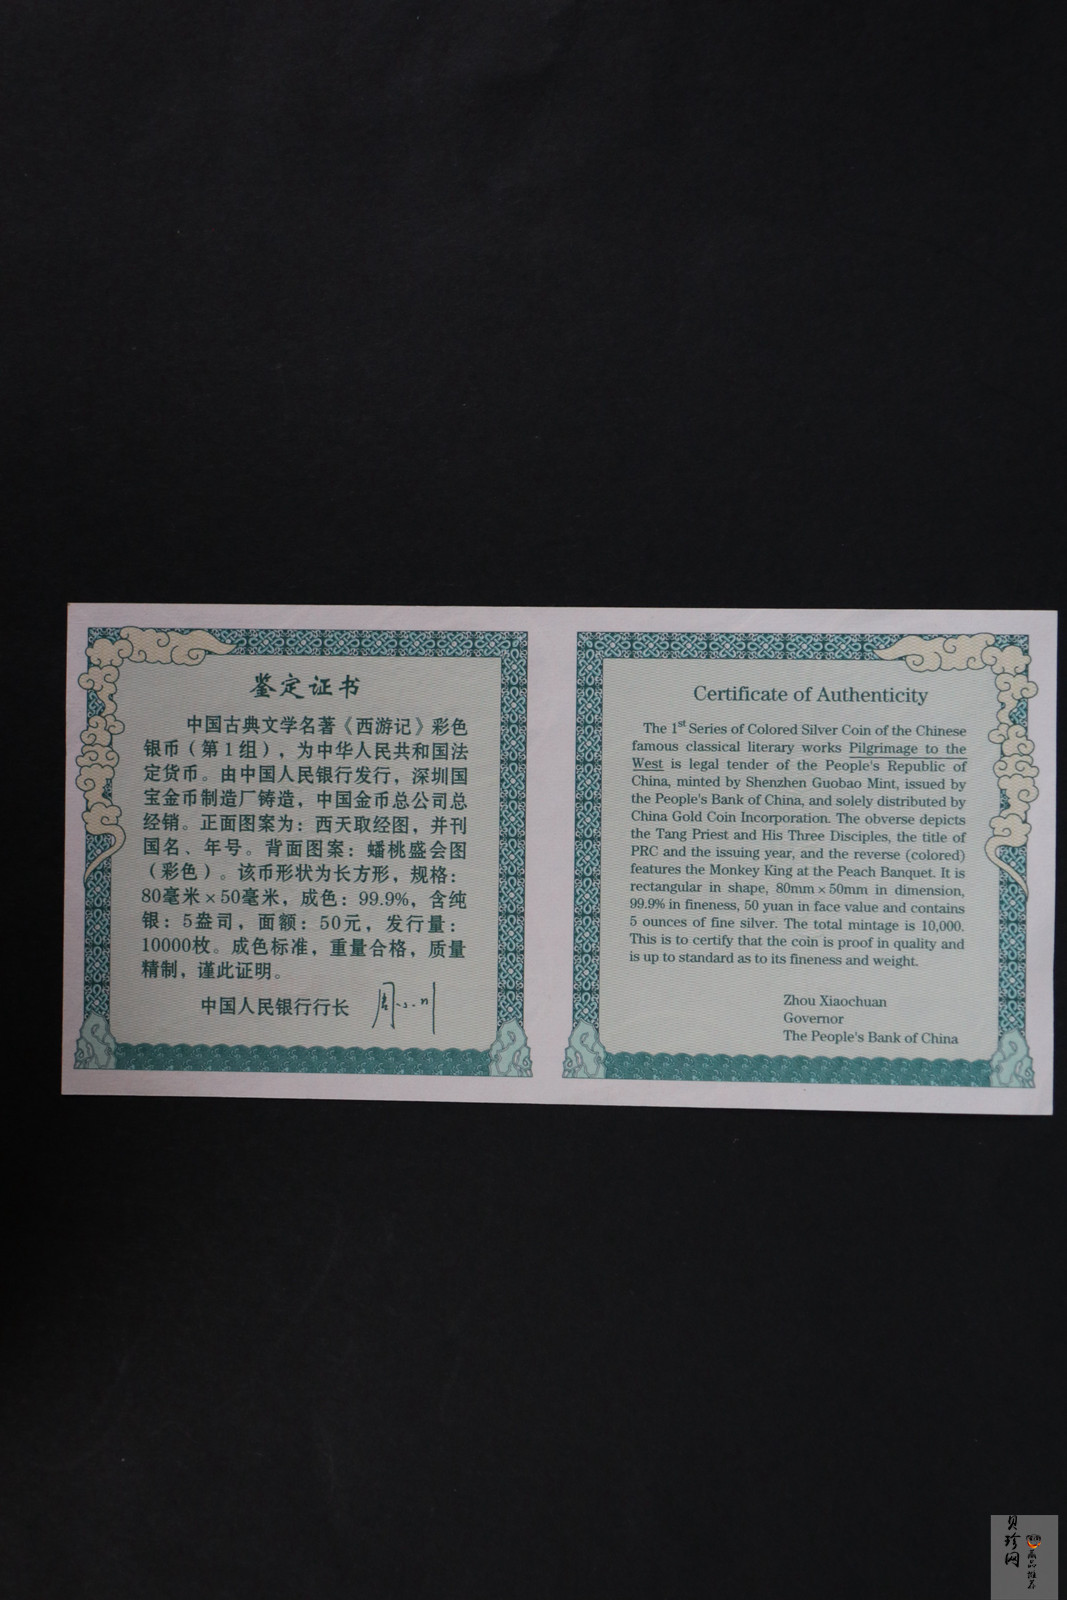 鉴定证书
中国古典文学名著《西游记》彩色
银币（第1组），为中华人民共和国法
定货币。由中国人民银行发行，深圳国
宝金币制造厂铸造，中国金币总公司总
经销。正面图案为：西天取经图，并刊
国名、年号。背面图案：蟠桃盛会图
（彩色）。该币形状为长方形，规格：
80毫米×50毫米，成色：99.9%，含纯
银：5盎司，面额：50元，发行量：
10000枚。成色标准，重量合格，质量
精制，谨此证明。
中国人民银行行长
Certificate of Authenticity
The 1st Series of Colored Silver Coin of the Chinese
famous classical literary works Pilgrimage to the
West is legal tender of the People's Republic of
China, minted by Shenzhen Guobao Mint, issued by
the People's Bank of China, and solely distributed by
China Gold Coin Incorporation. The obverse depicts
the Tang Priest and His Three Disciples, the title of
PRC and the issuing year, and the reverse (colored)
features the Monkey King at the Peach Banquet. It is
rectangular in shape, 80mm×50mm in dimension,
99.9% in fineness, 50 yuan in face value and contains
5 ounces of fine silver. The total mintage is 10,000.
This is to certify that the coin is proof in quality and
is up to standard as to its fineness and weight.
Zhou Xiaochuan
Governor
The People's Bank of China
贝珍网